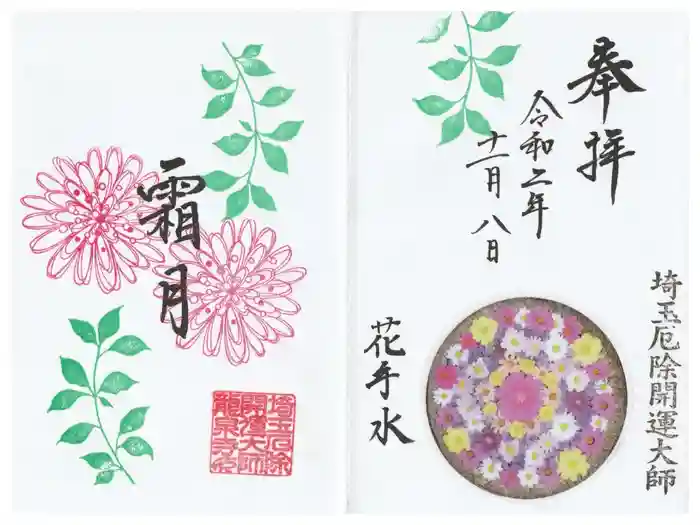 奉拝
令和二年
十一月八日
埼玉厄除開運大師
花手水
霜月
埼玉厄除
開運大師
龍泉寺印